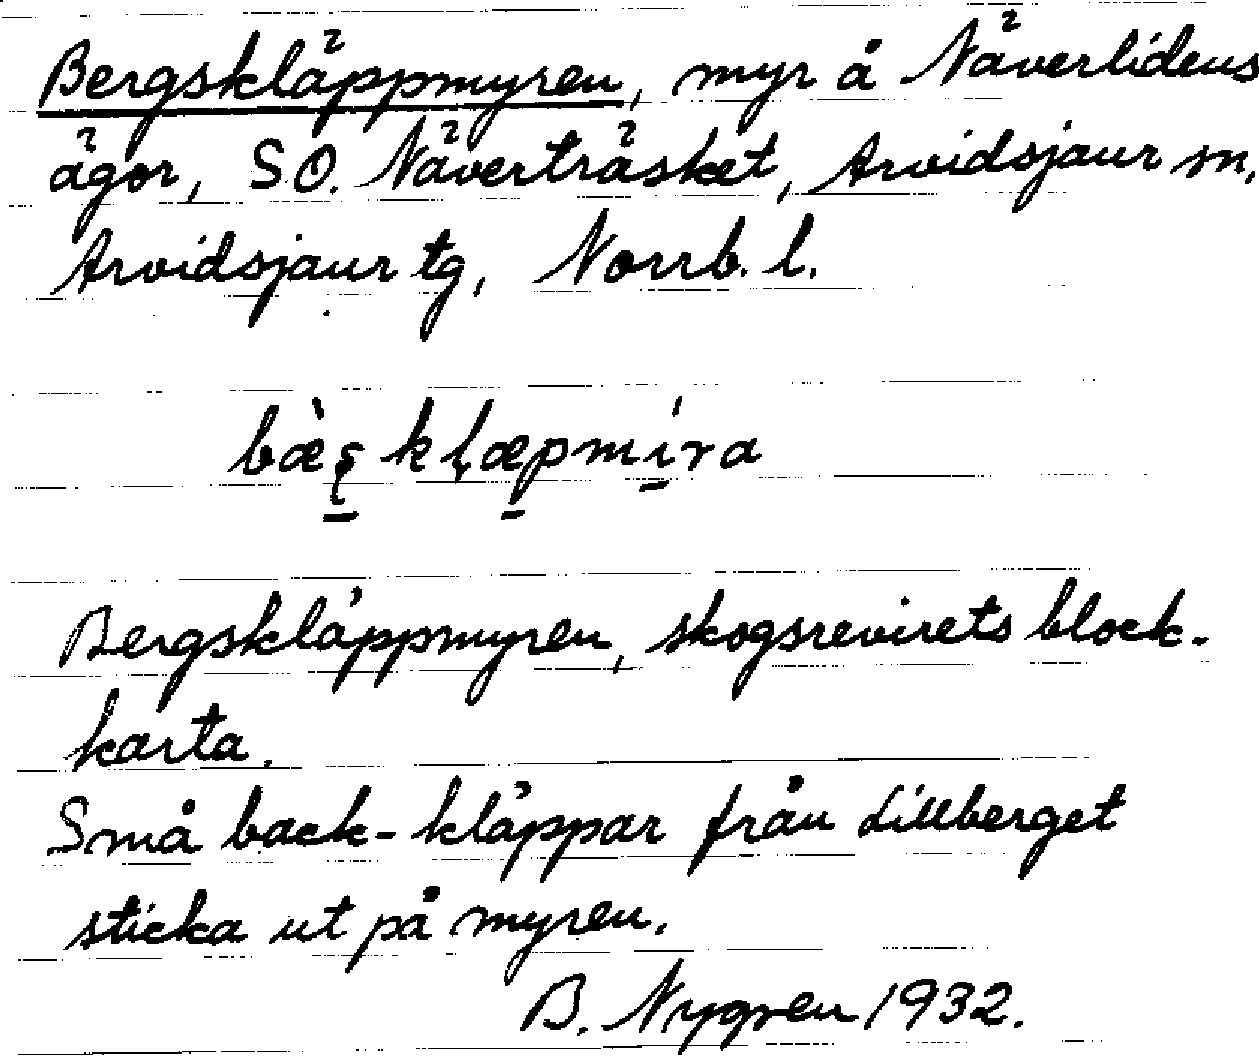 Bergskläppmyren, myr å Näverlidens
ägor, SO. Näverträsket, Arvidsjaur sn,
Arvidsjaur tg, Norrb. l.
Bergskläppmyren, skogsrevirets block-
karta.
Små back-kläppar från Lillberget
sticka ut på myren.
B. Nygren 1932.